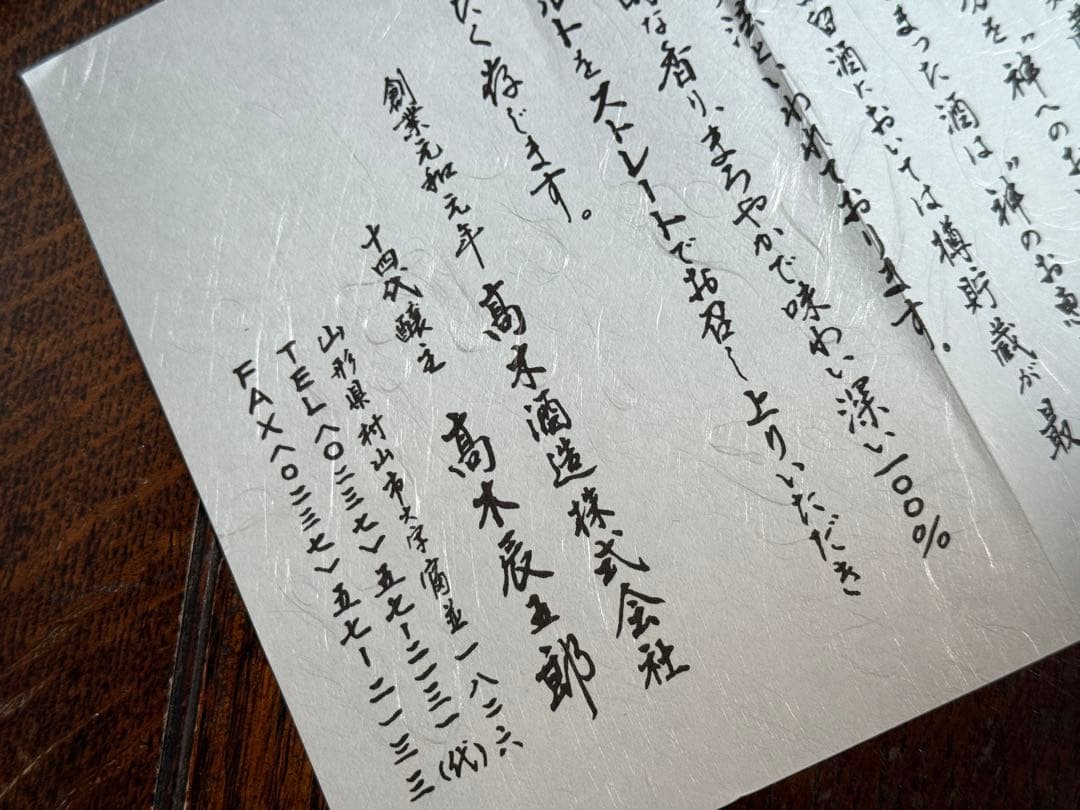 まった酒は〝神のお恵
留酒においては樽貯蔵が最
法といわれております。
な香り、まろやかで味わい深い一〇〇％
ルトをストレートでお召し上りいただき
たく存じます。
創業元和元年 高木酒造株式会社
十四代醸主 高木辰五郎
山形県村山市大字富並一八二六
TEL〈〇二三七〉五七ー二一三一(代)
FAX〈〇二三七〉五七ー二一三三